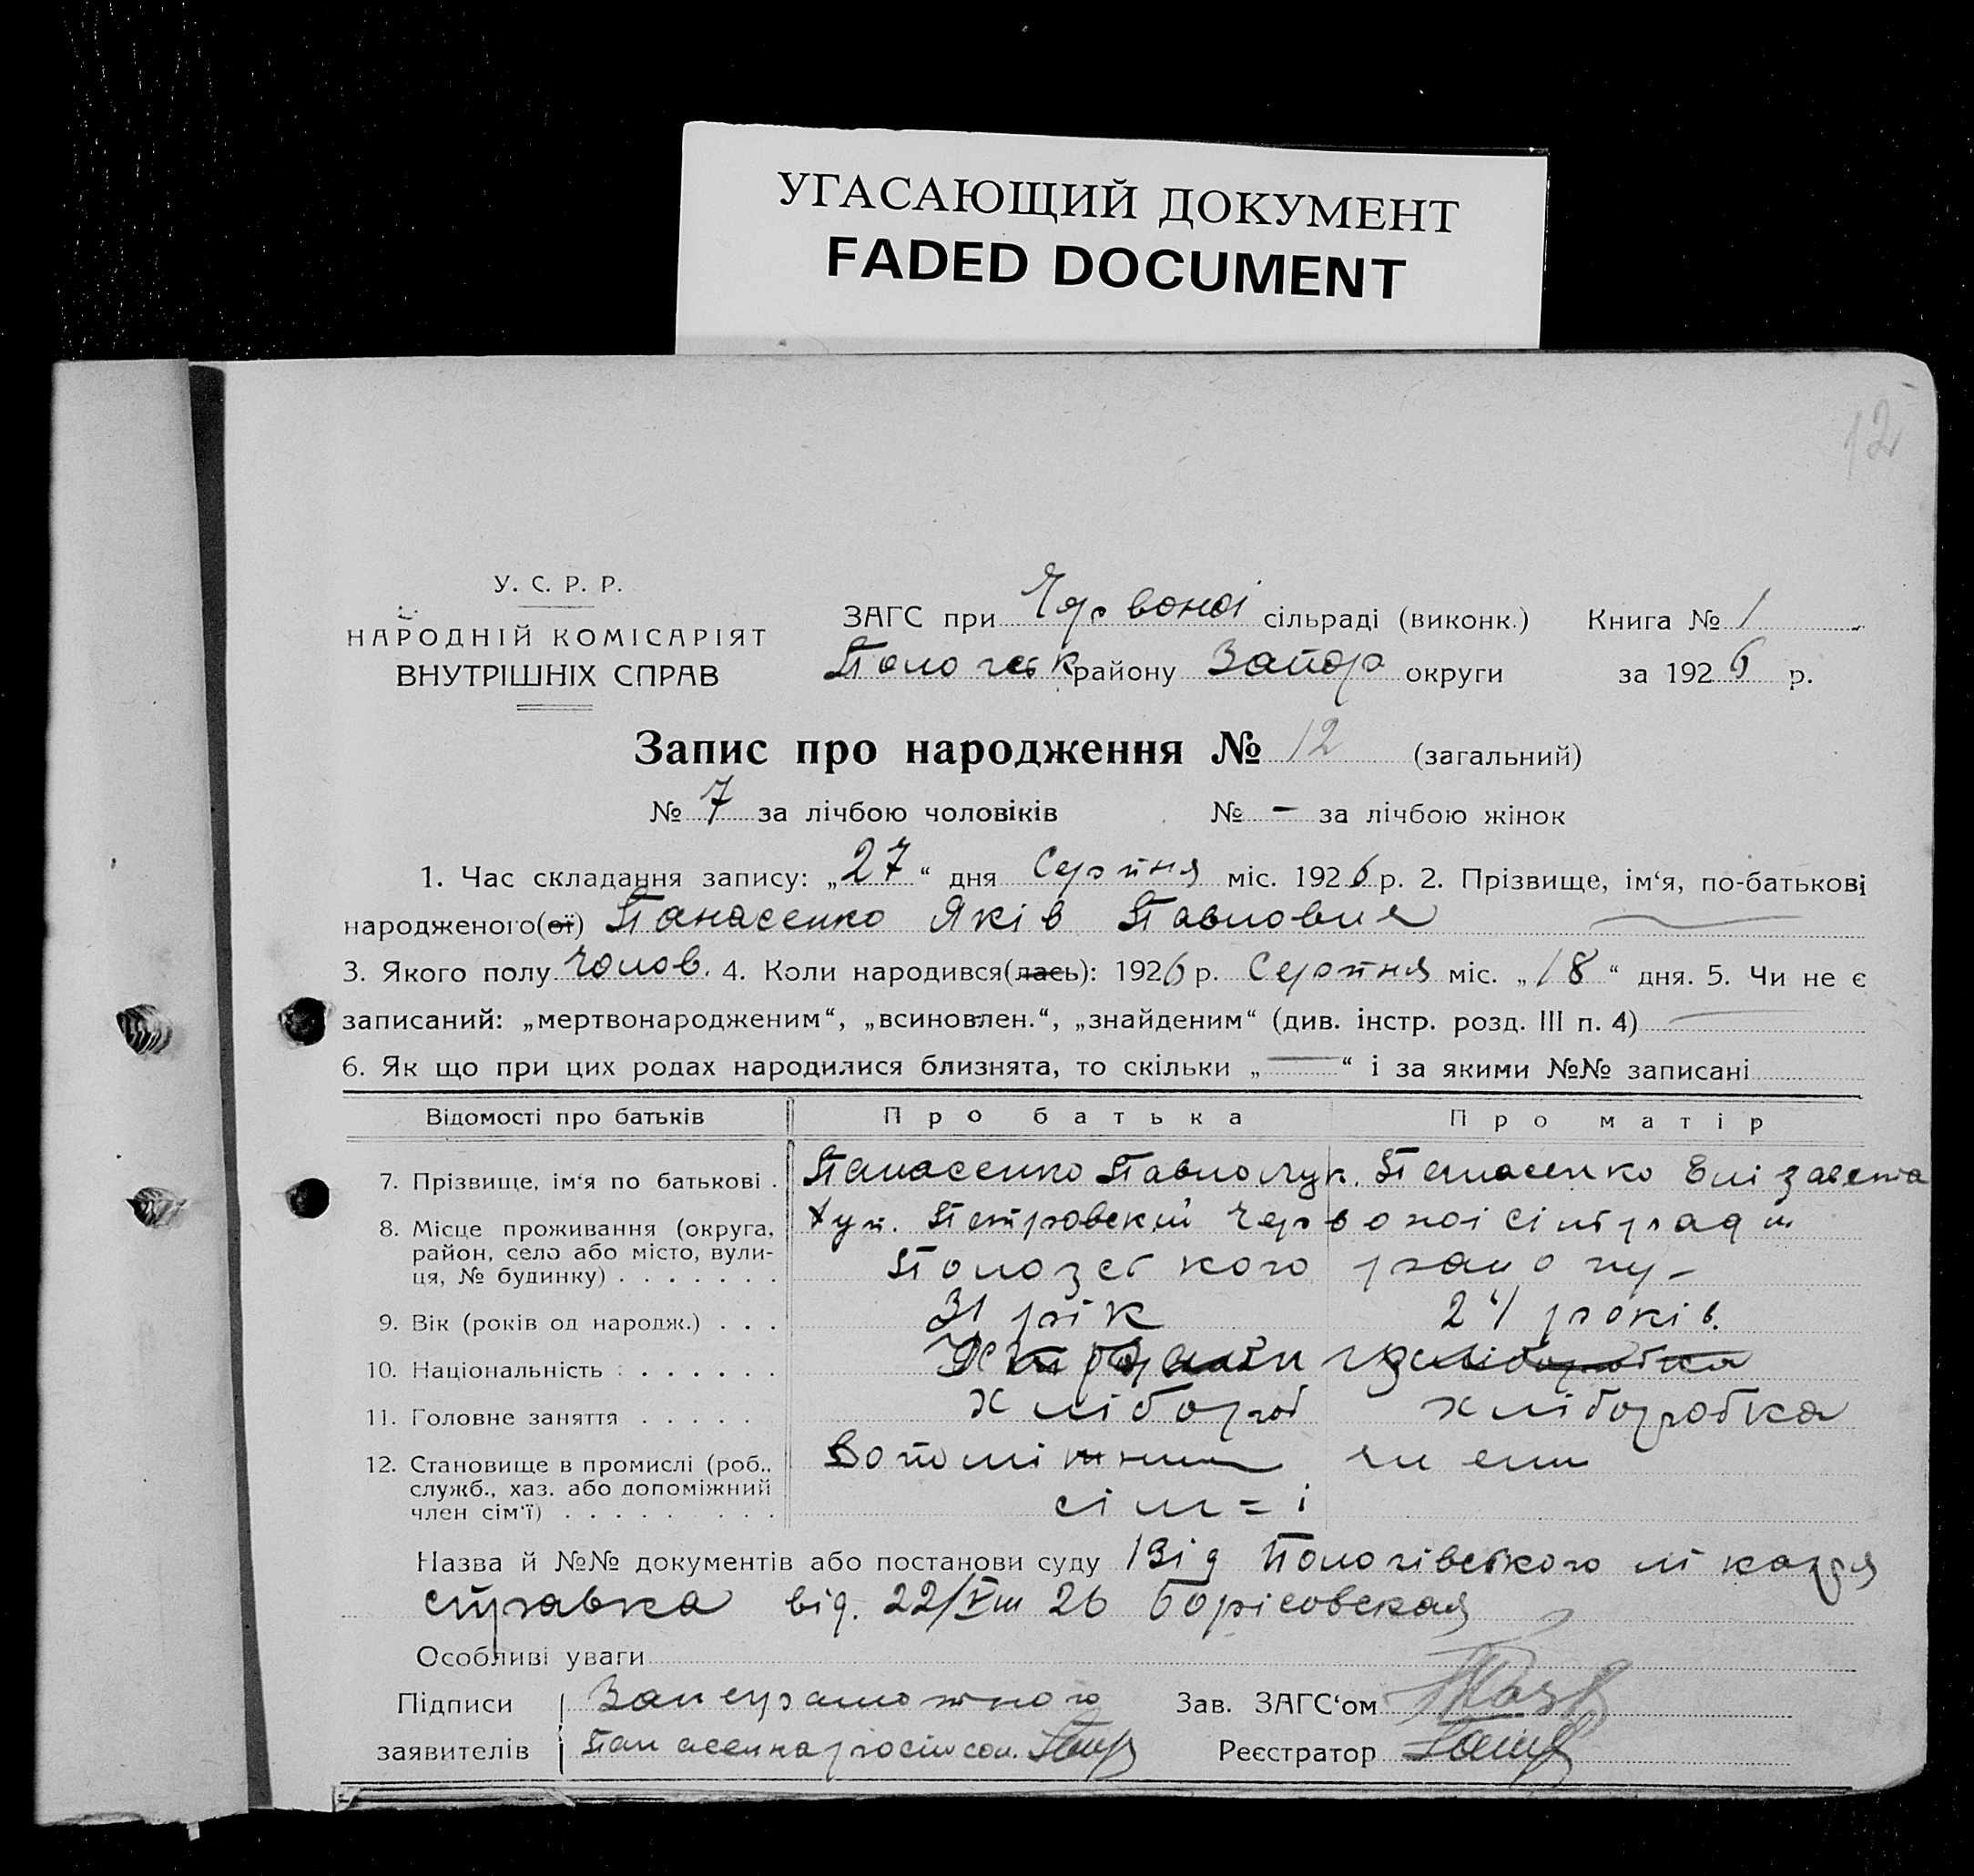 УГАСАЮЩИЙ ДОКУМЕНТ
FADED DOCUMENT
12
У. С. Р. Р.
НАРОДНІЙ КОМІСАРІЯТ
ВНУТРІШНІХ СПРАВ
ЗАГС при Червоній сільраді (виконк.) Книга № 1
Пологськ району Запор округи за 1926 р.
Запис про народження № 12 (загальний)
№ 7 за лічбою чоловіків № – за лічбою жінок
1. Час складання запису: „27“ дня Серпня міс. 1926 р. 2. Прізвище, ім‘я, по-батькові
народженого(ої) Панасенко Яків Павлович
3. Якого полу Чолов. 4. Коли народився(лась): 1926 р. Серпня міс. „18“ дня. 5. Чи не є
записаний: „мертвонародженим“, „всиновлен.“, „знайденим“ (див. інстр. розд. III п. 4)
6. Як що при цих родах народилися близнята, то скільки „—“ і за якими №№ записані
Відомості про батьків Про батька Про матір
7. Прізвище, ім‘я по батькові . Панасенко Павло Лук. Панасенко Елізавета
8. Місце проживання (округа, район, село або місто, вулиця, № будинку) . . . . . . . Хут. Петровский Червоноі сілради
Пологського району –
9. Вік (років од народж.) . . . 31 рік 24 років.
10. Національність . . . . . . хлібороб хліборобка
11. Головне заняття . . . . . хлібороб хліборобка
12. Становище в промислі (роб., служб., хаз. або допоміжний член сім‘ї) . . . . . . . . . член
сім=і
Назва й №№ документів або постанови суду Від Пологівського лікаря
справка від. 22/VIII 26 Борісовская
Особливі уваги
Підписи За неграмотного
заявителів Панасенка росписал.
Зав. ЗАГС‘ом
Реєстратор